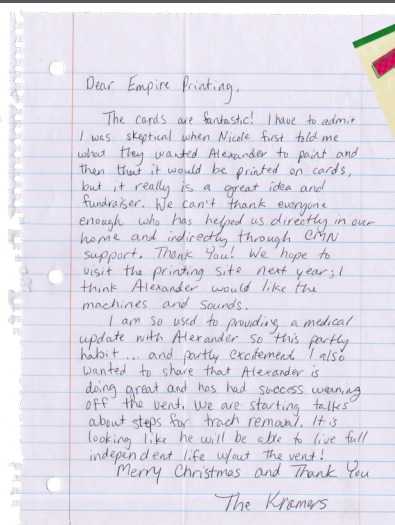 Dear Empire Printing,
The cards are fantastic! I have to admit
I was skeptical when Nicole first told me
what they wanted Alexander to paint and
then that it would be printed on cards,
but it really is a great idea and
fundraiser. We can't thank everyone
enough who has helped us directly in our
home and indirectly through CMN
support. Thank You! We hope to
visit the printing site next year; I
think Alexander would like the
machines and sounds.
I am so used to providing a medical
update with Alexander so this partly
habit... and partly excitement. I also
wanted to share that Alexander is
doing great and has had success weaning
off the vent. We are starting talks
about steps for trach removal. It is
looking like he will be able to live full
independent life w/out the vent!
Merry Christmas and Thank You
The Kramers